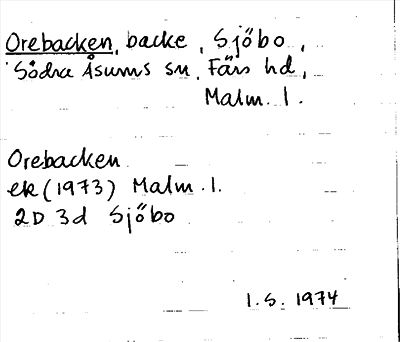 Orebacken, backe, Sjöbo,
Södra Åsums sn, Färs hd,
Malm. l.
Orebacken
ek (1973) Malm. l.
2D 3d Sjöbo
I. S. 1974